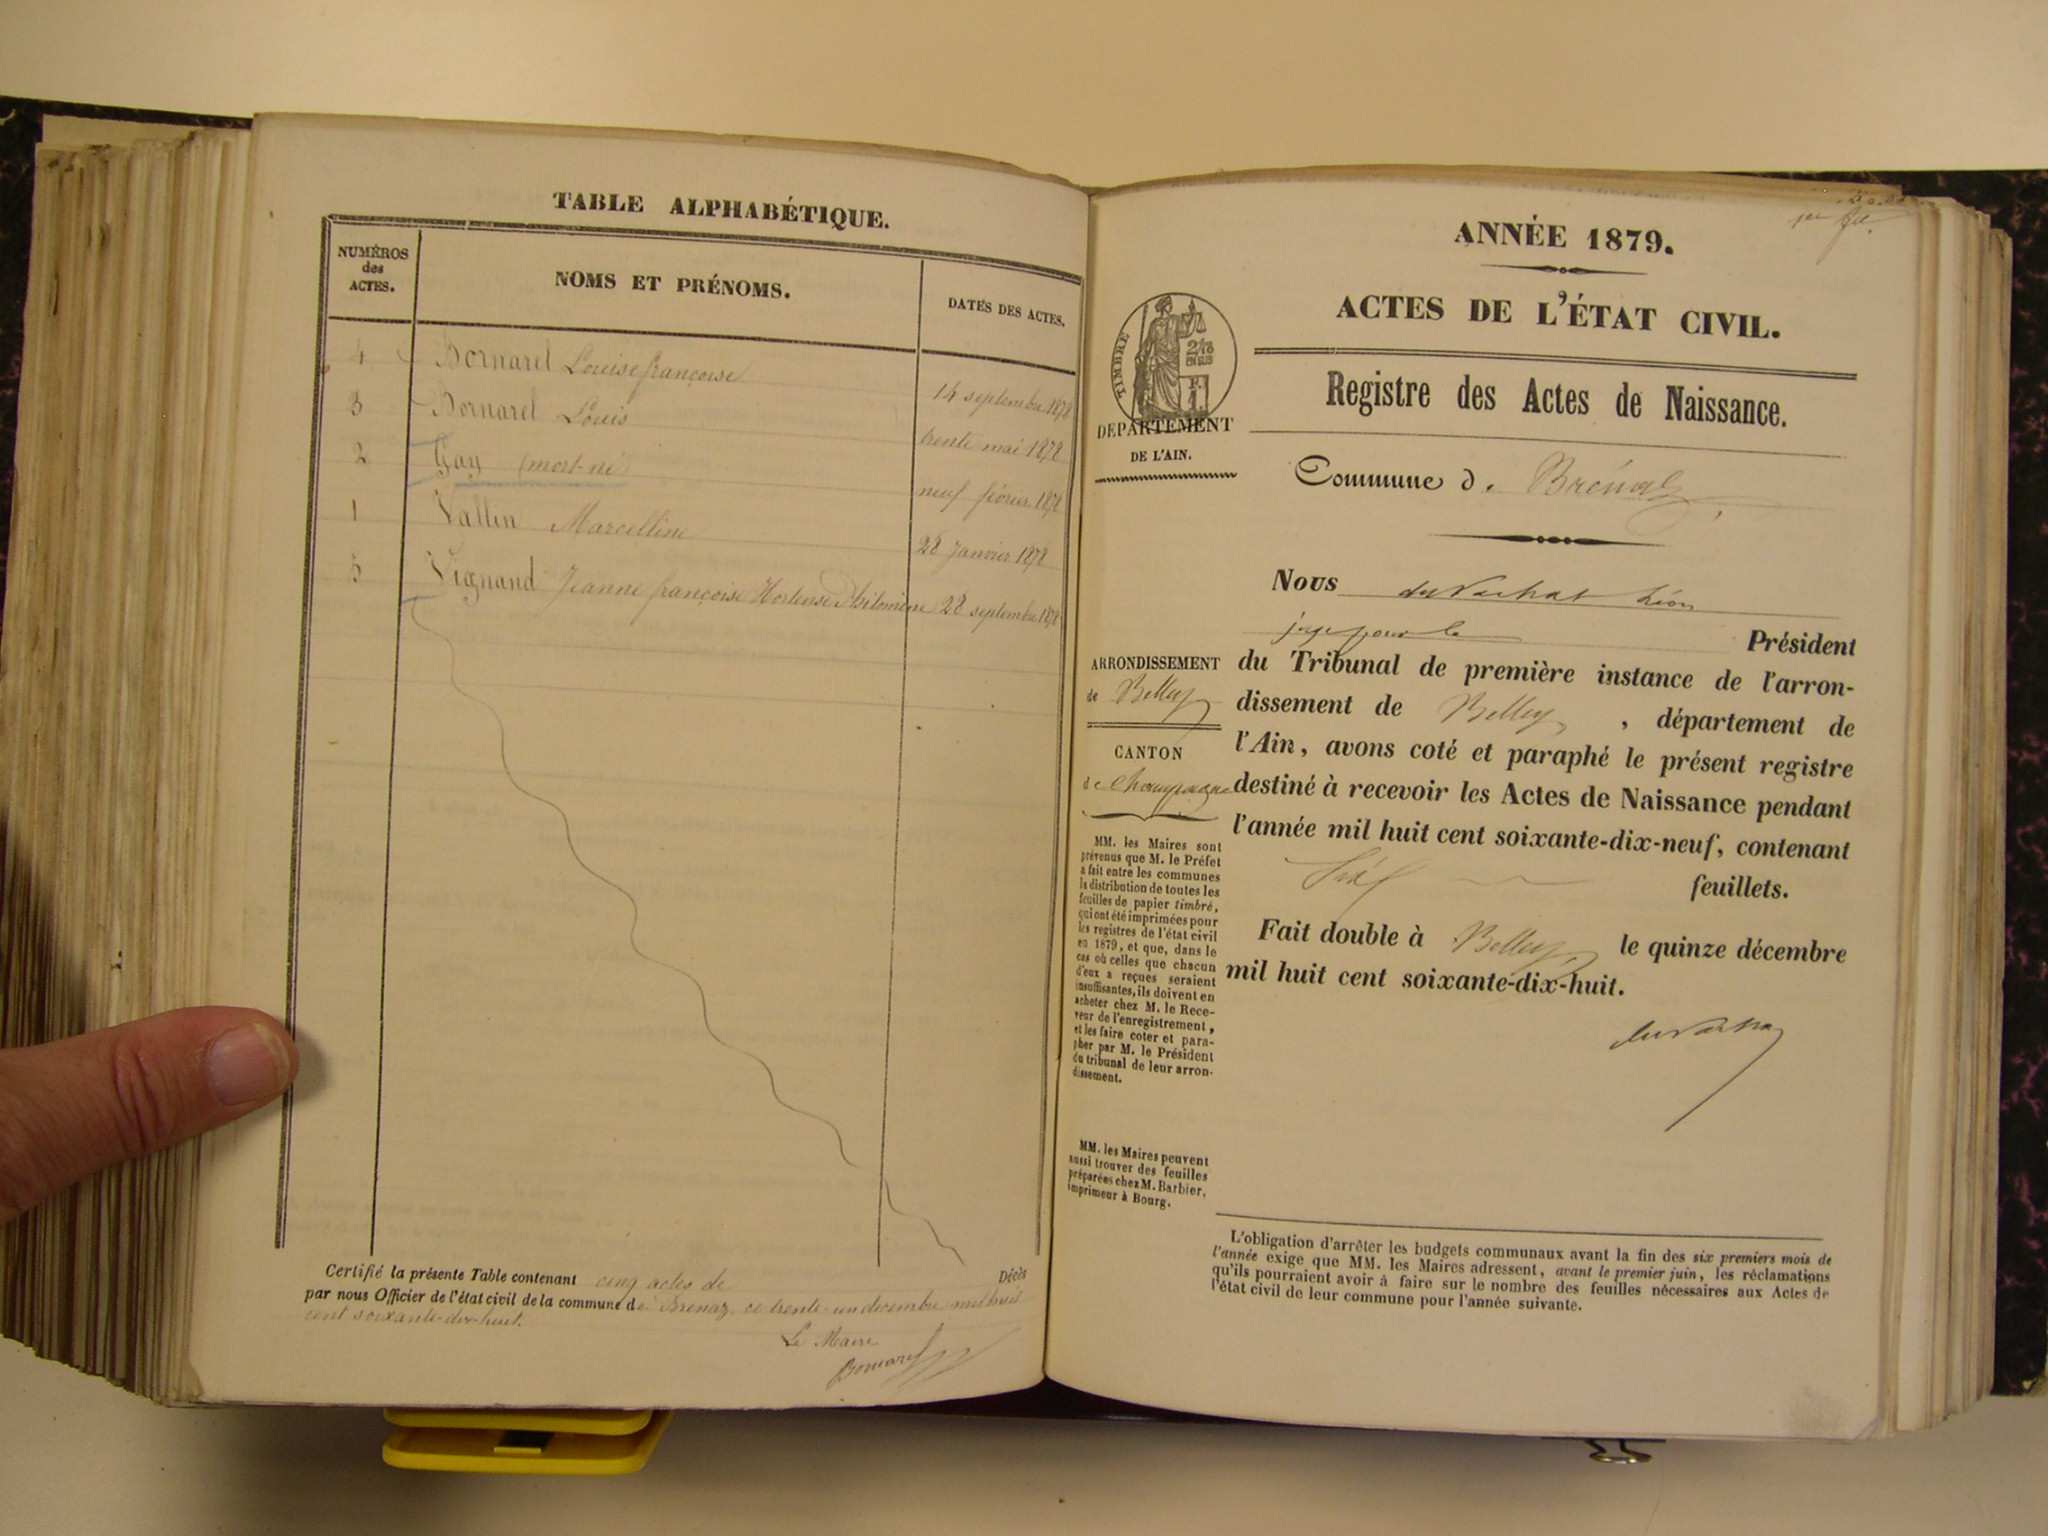 TABLE ALPHABÉTIQUE.
NUMÉROS
des
ACTES.
NOMS ET PRÉNOMS.
DATES DES ACTES.
4 Bornarel Louise françoise 14 septembre 1878
3 Bornarel Louis trente mai 1878
2 Gay (mort-né) neuf février 1878
1 Vallin Marcelline 28 Janvier 1878
5 Vignand Jeanne françoise Hortense Philomène 28 septembre 1878
Certifié la présente Table contenant cinq actes de Décès
par nous Officier de l'état civil de la commune de Brénaz ce trente-un décembre mil huit
cent soixante-dix-huit.
Le Maire
Bornarel
ANNÉE 1879.
ACTES DE L'ÉTAT CIVIL.
TIMBRE
DÉPARTEMENT
DE L'AIN.
Registre des Actes de Naissance.
Commune d. Brénaz
Nous Léon
juge pour le Président
du Tribunal de première instance de l'arron-
dissement de Belley, département de
l'Ain, avons coté et paraphé le présent registre
destiné à recevoir les Actes de Naissance pendant
l'année mil huit cent soixante-dix-neuf, contenant
feuillets.
Fait double à Belley le quinze décembre
mil huit cent soixante-dix-huit.
ARRONDISSEMENT
de Belley
CANTON
de Champagne
MM. les Maires sont
prévenus que M. le Préfet
a fait entre les communes
la distribution de toutes les
feuilles de papier timbré,
qui ont été imprimées pour
les registres de l'état civil
en 1879, et que, dans le
cas où celles que chacun
d'eux a reçues seraient
insuffisantes, ils doivent en
acheter chez M. le Rece-
veur de l'enregistrement,
et les faire coter et para-
pher par M. le Président
du tribunal de leur arron-
dissement.
MM. les Maires peuvent
aussi trouver des feuilles
préparées chez M. Barbier,
imprimeur à Bourg.
L'obligation d'arrêter les budgets communaux avant la fin des six premiers mois de
l'année exige que MM. les Maires adressent, avant le premier juin, les réclamations
qu'ils pourraient avoir à faire sur le nombre des feuilles nécessaires aux Actes de
l'état civil de leur commune pour l'année suivante.